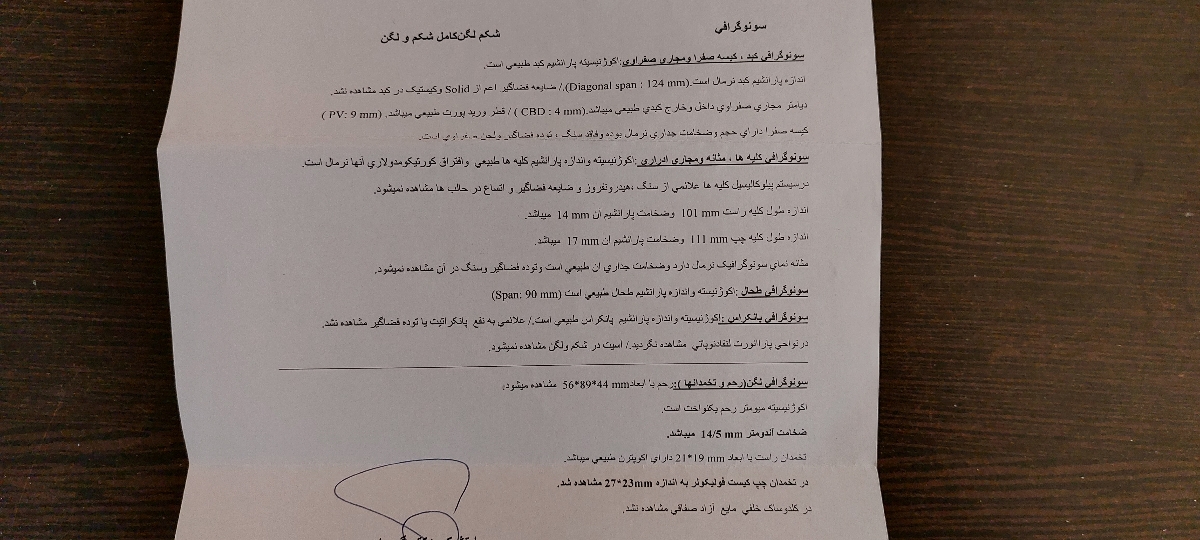 سونوگرافي
شکم لگن‌کامل شکم و لگن
سونوگرافي کبد ، کيسه صفرا ومجاري صفراوي:اکوژنيسيته پارانشيم کبد طبيعي است.
اندازه پارانشيم کبد نرمال است.(Diagonal span : 124 mm)./ ضايعه فضاگير اعم از Solid وکيستيک در کبد مشاهده نشد.
ديامتر مجاري صفراوي داخل وخارج کبدي طبيعي ميباشد.(CBD : 4 mm ) / قطر وريد پورت طبيعي ميباشد. (PV: 9 mm )
کيسه صفرا داراي حجم وضخامت جداري نرمال بوده وفاقد سنگ ، توده فضاگير ولجن صفراوي است.
سونوگرافي کليه ها ، مثانه ومجاري ادراري :اکوژنيسيته واندازه پارانشيم کليه ها طبيعي وافتراق کورتيکومدولاري آنها نرمال است.
درسيستم پيلوکاليسيل کليه ها علائمي از سنگ ،هيدرونفروز و ضايعه فضاگير و اتساع در حالب ها مشاهده نميشود.
اندازه طول کليه راست 101 mm وضخامت پارانشيم ان 14 mm ميباشد.
اندازه طول کليه چپ 111 mm وضخامت پارانشيم ان 17 mm ميباشد.
مثانه نماي سونوگرافيک نرمال دارد وضخامت جداري ان طبيعي است وتوده فضاگير وسنگ در آن مشاهده نميشود.
سونوگرافي طحال :اکوژنيسته واندازه پارانشيم طحال طبيعي است (Span: 90 mm)
سونوگرافي پانکراس :اکوژنيسيته واندازه پارانشيم پانکراس طبيعي است./ علائمي به نفع پانکراتيت يا توده فضاگير مشاهده نشد.
درنواحي پارائورت لنفادنوپاتي مشاهده نگرديد./ اسيت در شکم ولگن مشاهده نميشود.
سونوگرافي لگن(رحم و تخمدانها ):رحم با ابعاد56*89*44 mm مشاهده ميشود.
اکوژنيسيته ميومتر رحم يکنواخت است.
ضخامت آندومتر 14/5 mm ميباشد.
تخمدان راست با ابعاد 21*19 mm داراي اکوپترن طبيعي ميباشد.
در تخمدان چپ کيست فوليکولر به اندازه 27*23mm مشاهده شد.
در کلدوساک خلفي مايع آزاد صفاقي مشاهده نشد.